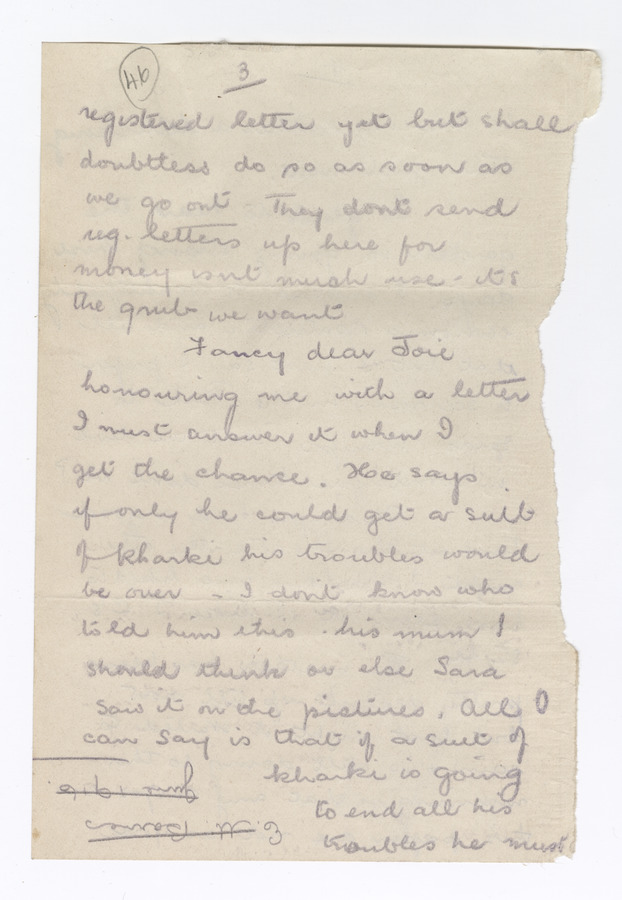 46
3
registered letter yet but shall
doubtless do so as soon as
we go out - They don't send
reg. letters up here for
money isn't much use - it's
the grub we want
Fancy dear Joie
honouring me with a letter
I must answer it when I
get the chance. He says
if only he could get a suit
of kharki his troubles would
be over - I don't know who
told him this - his mum I
should think or else Sara
saw it on the pictures. All I
can say is that if a suit of
kharki is going
to end all his
troubles he must
E. M.